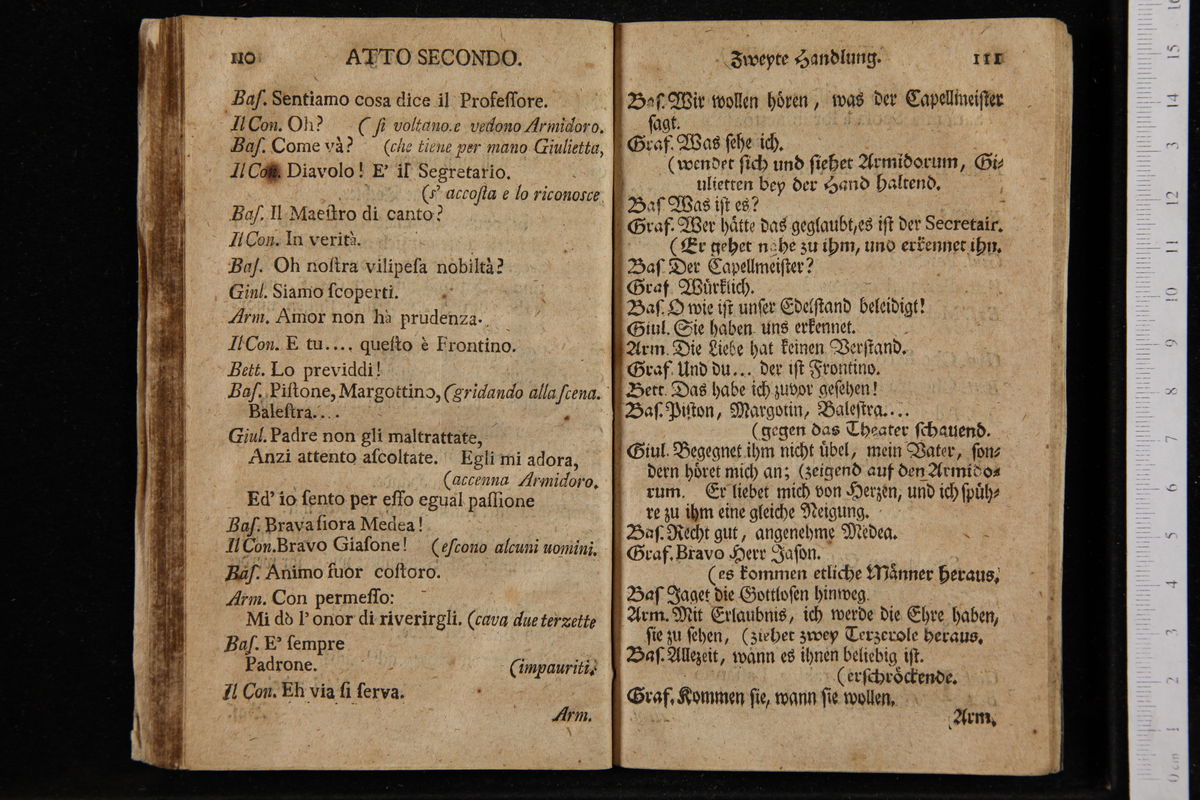 110 ATTO SECONDO.
Baſ. Sentiamo cosa dice il Profeſſore.
Il Con. Oh? (ſi voltano.e vedono Armidoro.
Baſ. Come và? (che tiene per mano Giulietta,
Il Con. Diavolo! E' il Segretario.
(s' accoſta e lo riconosce
Baſ. Il Maeſtro di canto?
Il Con. In verità.
Baſ. Oh noſtra vilipeſa nobiltà?
Ginl. Siamo ſcoperti.
Arm. Amor non ha prudenza.
Il Con. E tu.... queſto è Frontino.
Bett. Lo previddi!
Baſ. Piſtone, Margottino, (gridando alla ſcena.
Baleſtra....
Giul. Padre non gli maltrattate,
Anzi attento aſcoltate. Egli mi adora,
(accenna Armidoro.
Ed' io ſento per eſſo egual paſſione
Baſ. Brava ſiora Medea!
Il Con. Bravo Giaſone! (eſcono alcuni uomini.
Baſ. Animo fuor coſtoro.
Arm. Con permeſſo:
Mi dò l' onor di riverirgli. (cava due terzette
Baſ. E' ſempre
Padrone. (impauriti.
Il Con. Eh via ſi ſerva.
Arm.
Zweyte Handlung. 111
Baſ. Wir wollen hören, was der Capellmeiſter
ſagt.
Graf. Was ſehe ich.
(wendet ſich und ſiehet Armidorum, Gi-
ulietten bey der Hand haltend.
Baſ Was iſt es?
Graf. Wer hätte das geglaubt, es iſt der Secretair.
(Er gehet nahe zu ihm, und erkennet ihn.
Baſ. Der Capellmeiſter?
Graf. Würklich.
Baſ. O wie iſt unſer Edelſtand beleidigt!
Giul. Sie haben uns erkennet.
Arm. Die Liebe hat keinen Verſtand.
Graf. Und du... der iſt Frontino.
Bett. Das habe ich zuvor geſehen!
Baſ. Piſton, Margotin, Baleſtra....
(gegen das Theater ſchauend.
Giul. Begegnet ihm nicht übel, mein Vater, ſon-
dern höret mich an; (zeigend auf den Armido-
rum. Er liebet mich von Herzen, und ich ſpüh-
re zu ihm eine gleiche Neigung.
Baſ. Recht gut, angenehme Medea.
Graf. Bravo Herr Jaſon.
(es kommen etliche Männer heraus.
Baſ Jaget die Gottloſen hinweg.
Arm. Mit Erlaubnis, ich werde die Ehre haben,
ſie zu ſehen, (ziehet zwey Terzerole heraus.
Baſ. Allezeit, wann es ihnen beliebig iſt.
(erſchröckende.
Graf. Kommen ſie, wann ſie wollen.
Arm.
0 cm 1 2 3 4 5 6 7 8 9 10 11 12 3 14 15 16